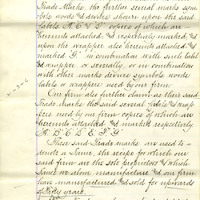 Trade Marks, the further several marks sym
bols words & devices shewn upon the said
labels A. C & D copies of which are
hereunto attached & respectively marked and
upon the wrapper also hereunto attached &
marked G. in combination with such label
or wrapper, or severally, or in combination
with other marks devices symbols words
labels or wrappers used by our firm.
Our firm also further claims as their said
Trade Marks the said several labels & wrap
pers used by our firm copies of which are
hereunto attached and marked respectively
A. B. C. D. E. F. G.
These said Trade Marks are used to
denote a Sauce, the recipe for which our
said firm are the sole proprietors & which
Sauce we alone manufacture & our firm
has manufactured & sold for upwards
of fifty years